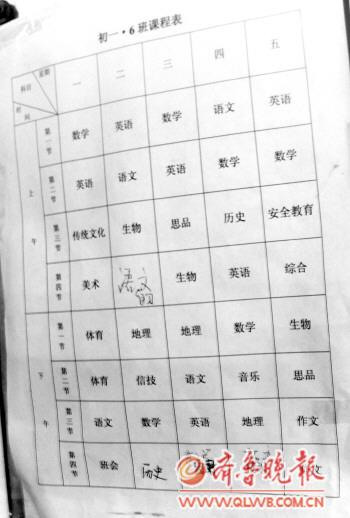 初一·6班课程表
星期 一 二 三 四 五
科目
时间
上午
第一节 数学 英语 数学 语文 英语
第二节 英语 语文 英语 数学 数学
第三节 传统文化 生物 思品 历史 安全教育
第四节 美术 语文 生物 英语 综合
下午
第一节 体育 地理 地理 数学 生物
第二节 体育 信技 语文 音乐 思品
第三节 语文 数学 英语 地理 作文
第四节 班会 历史
齐鲁晚报
WWW.QLWB.COM.CN